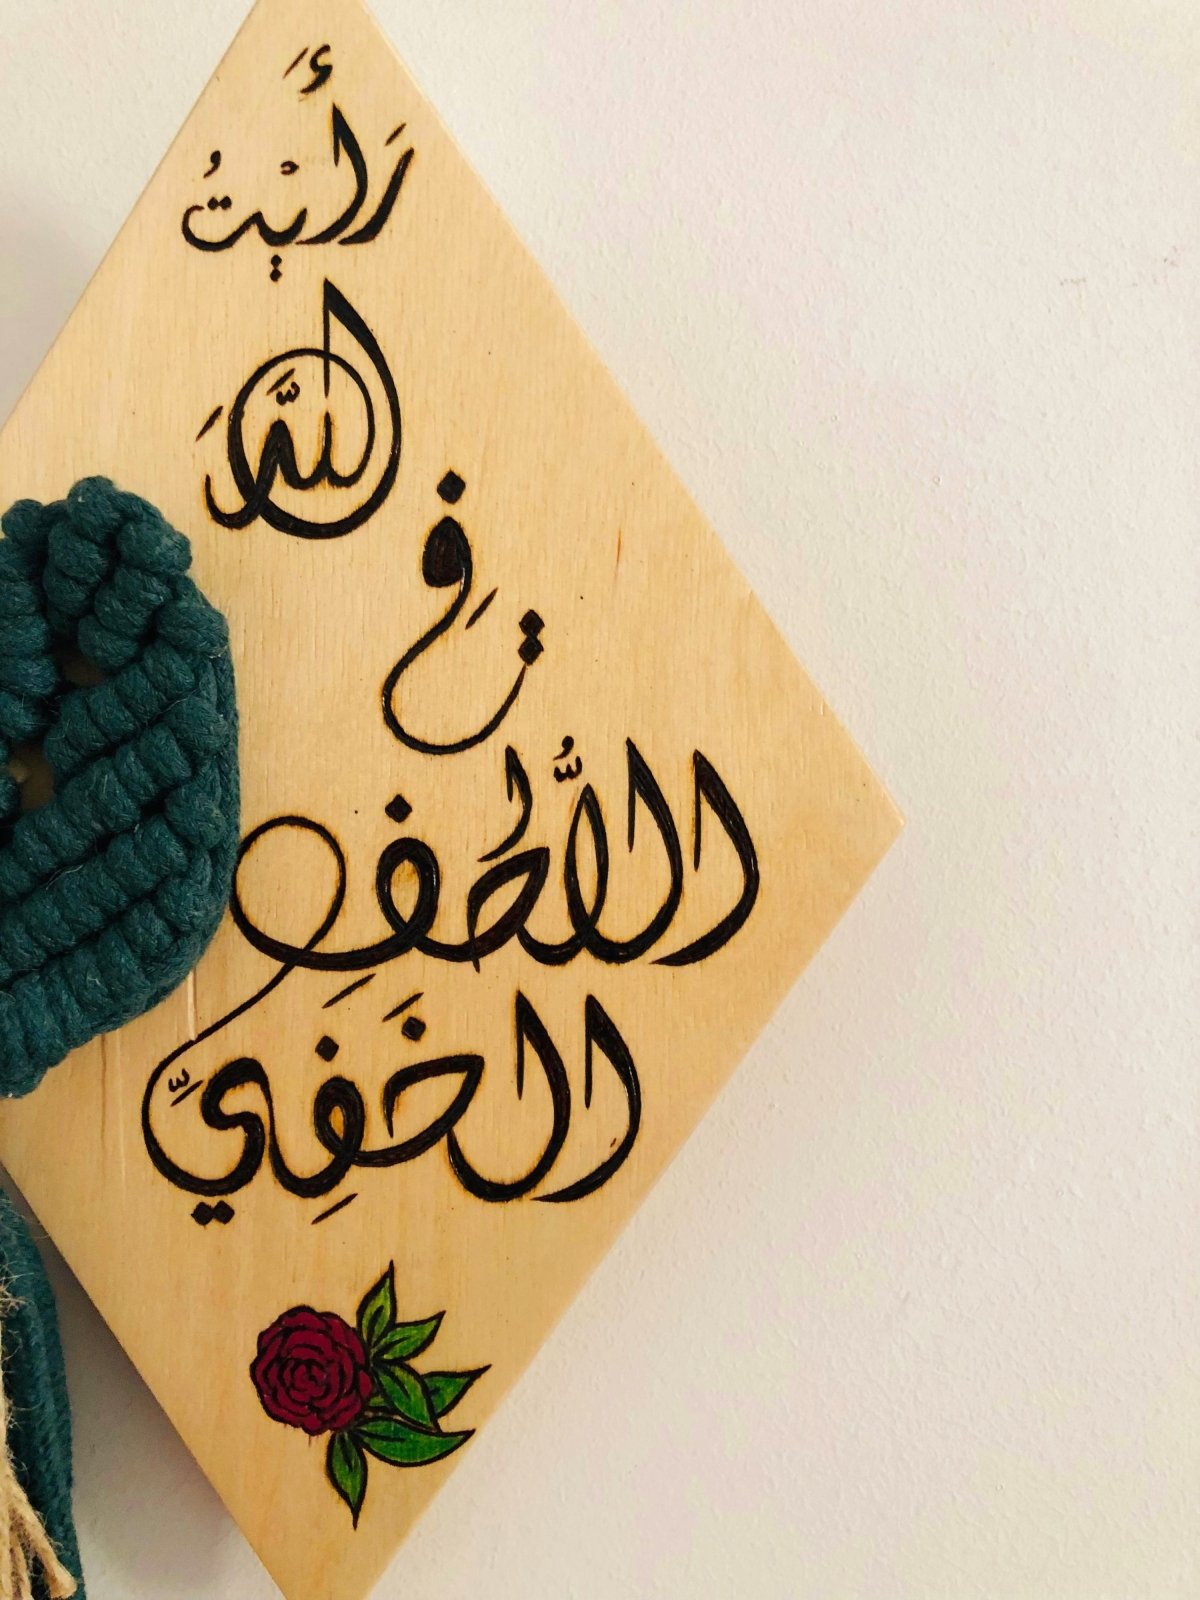 رَأَيْتُ
اللَّهَ
فِي
اللُّطفِ
الخَفِيِّ